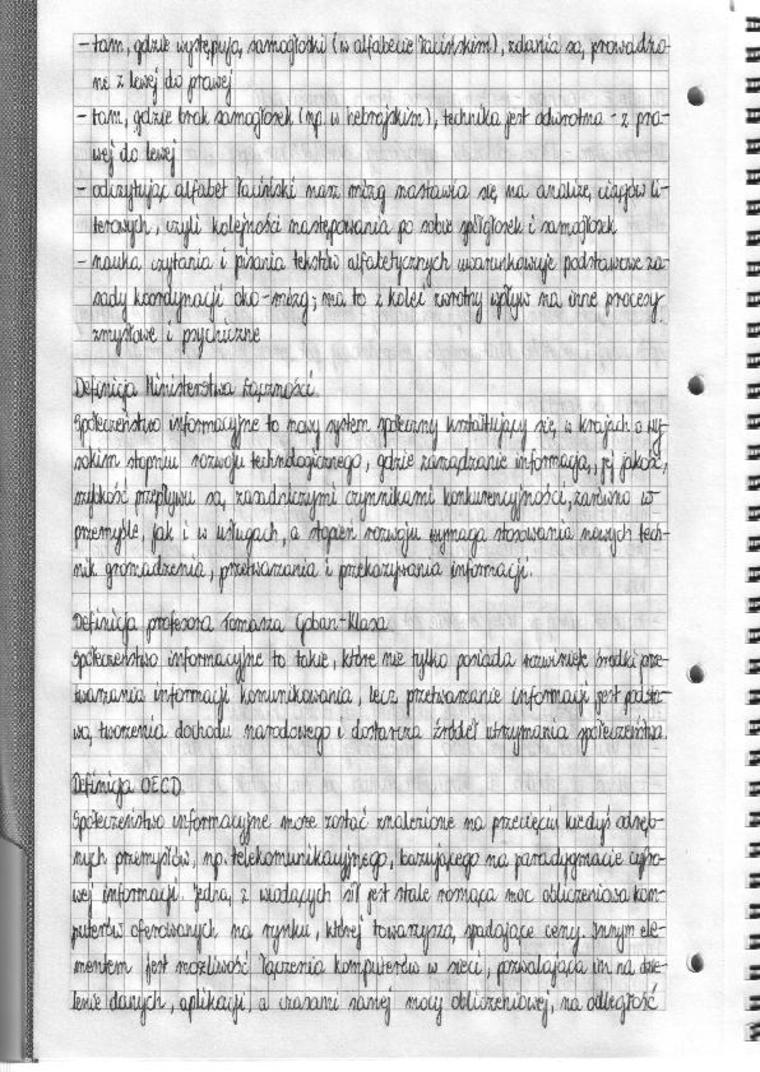 - tam, gdzie występują samogłoski (w alfabecie łacińskim), zdania są prowadzo-
ne z lewej do prawej
- tam, gdzie brak samogłosek (np. w hebrajskim), technika jest odwrotna - z pra-
wej do lewej
- odczytując alfabet łaciński nasz mózg nastawia się na analizę ciągów li-
terowych, czyli kolejności następowania po sobie spółgłosek i samogłosek
- nauka czytania i pisania tekstów alfabetycznych uwarunkowuje podstawowe za-
sady koordynacji oko-mózg; ma to z kolei zwrotny wpływ na inne procesy
zmysłowe i psychiczne
Definicja Ministerstwa Łączności
Społeczeństwo informacyjne to nowy system społeczny kształtujący się w krajach o wy-
sokim stopniu rozwoju technologicznego, gdzie zarządzanie informacją, jej jakość,
szybkość przepływu są zasadniczymi czynnikami konkurencyjności, zarówno w
przemyśle, jak i w usługach, a stopień rozwoju wymaga stosowania nowych tech-
nik gromadzenia, przetwarzania i przekazywania informacji.
Definicja profesora Tomasza Goban-Klasa
Społeczeństwo informacyjne to takie, które nie tylko posiada rozwinięte środki prze-
twarzania informacji komunikowania, lecz przetwarzanie informacji jest podsta-
wą tworzenia dochodu narodowego i dostarcza źródeł utrzymania społeczeństwa.
Definicja OECD
Społeczeństwo informacyjne może zostać znalezione na przecięciu kiedyś odręb-
nych przemysłów, np. telekomunikacyjnego, bazującego na paradygmacie cyfro-
wej informacji. Jedną z wiodących sił jest stale rosnąca moc obliczeniowa kom-
puterów oferowanych na rynku, której towarzyszą spadające ceny. Innym ele-
mentem jest możliwość łączenia komputerów w sieci, pozwalająca im na dzie-
lenie danych, aplikacji, a czasami samej mocy obliczeniowej, na odległość